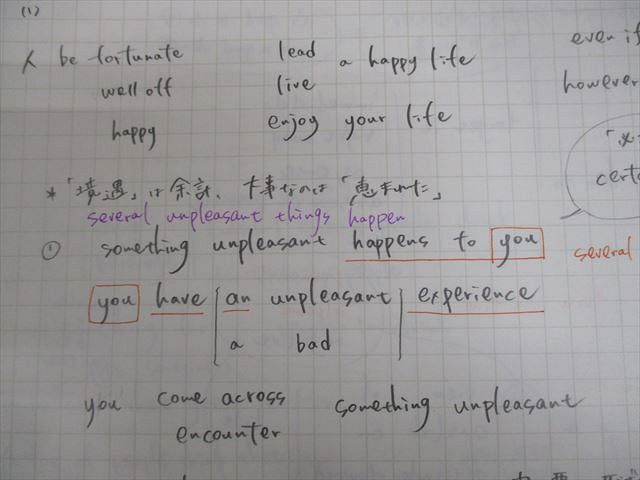 (1)
人 be fortunate lead a happy life even if
well off live however
happy enjoy your life
*「境遇」は余計、大事なのは「恵まれた」
certa
several unpleasant things happen
① something unpleasant happens to you several
you have an unpleasant experience
a bad
you come across something unpleasant
encounter